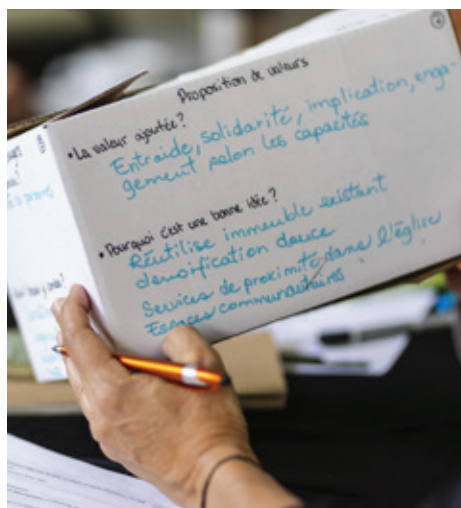 Proposition de valeurs
• La valeur ajoutée?
Entraide, solidarité, implication, enga-
gement selon les capacités
• Pourquoi c'est une bonne idée?
Réutilise immeuble existant
densification douce
Services de proximité dans l'église
Espaces communautaires